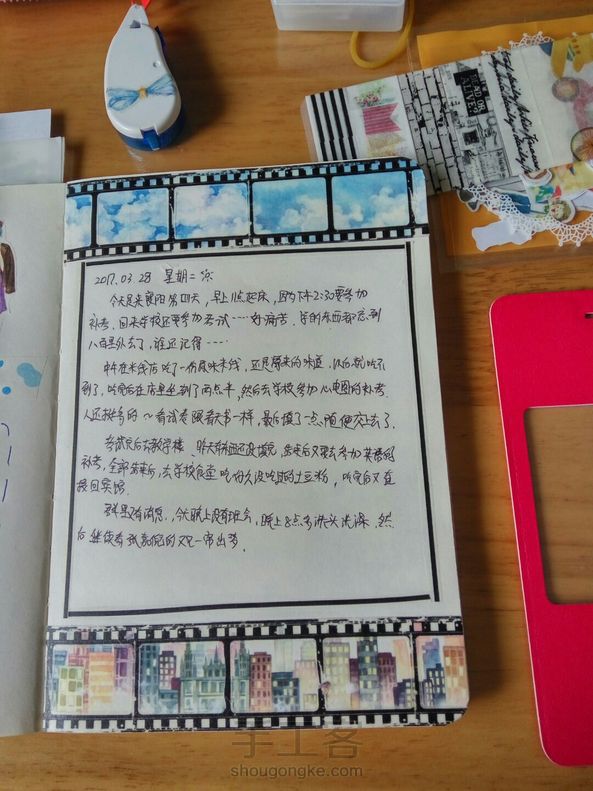 2017.03.28 星期二
今天是来襄阳第四天,早上11点起床,因为下午2:30要参加
补考,回来学校还要参加考试……好痛苦,学的东西都忘到
八百里外去了,谁还记得……
中午在米线店吃了一份原味米线,还是原来的味道,以后就吃不
到了,吃完后在店里坐到了两点半,然后去学校参加心电图的补考
人还挺多的~看试卷跟看天书一样,最后摸了一点,随便交上去了.
考试完后去教学楼,昨天有,出来后又要去参加英语的
补考,全部结束后,去学校食堂吃好久没吃过的土豆粉,吃完后又直
接回宾馆.
群里又有消息,今天晚上没有班会,晚上8点多洗头洗澡,然
后继续看
手工客
shougongke.com